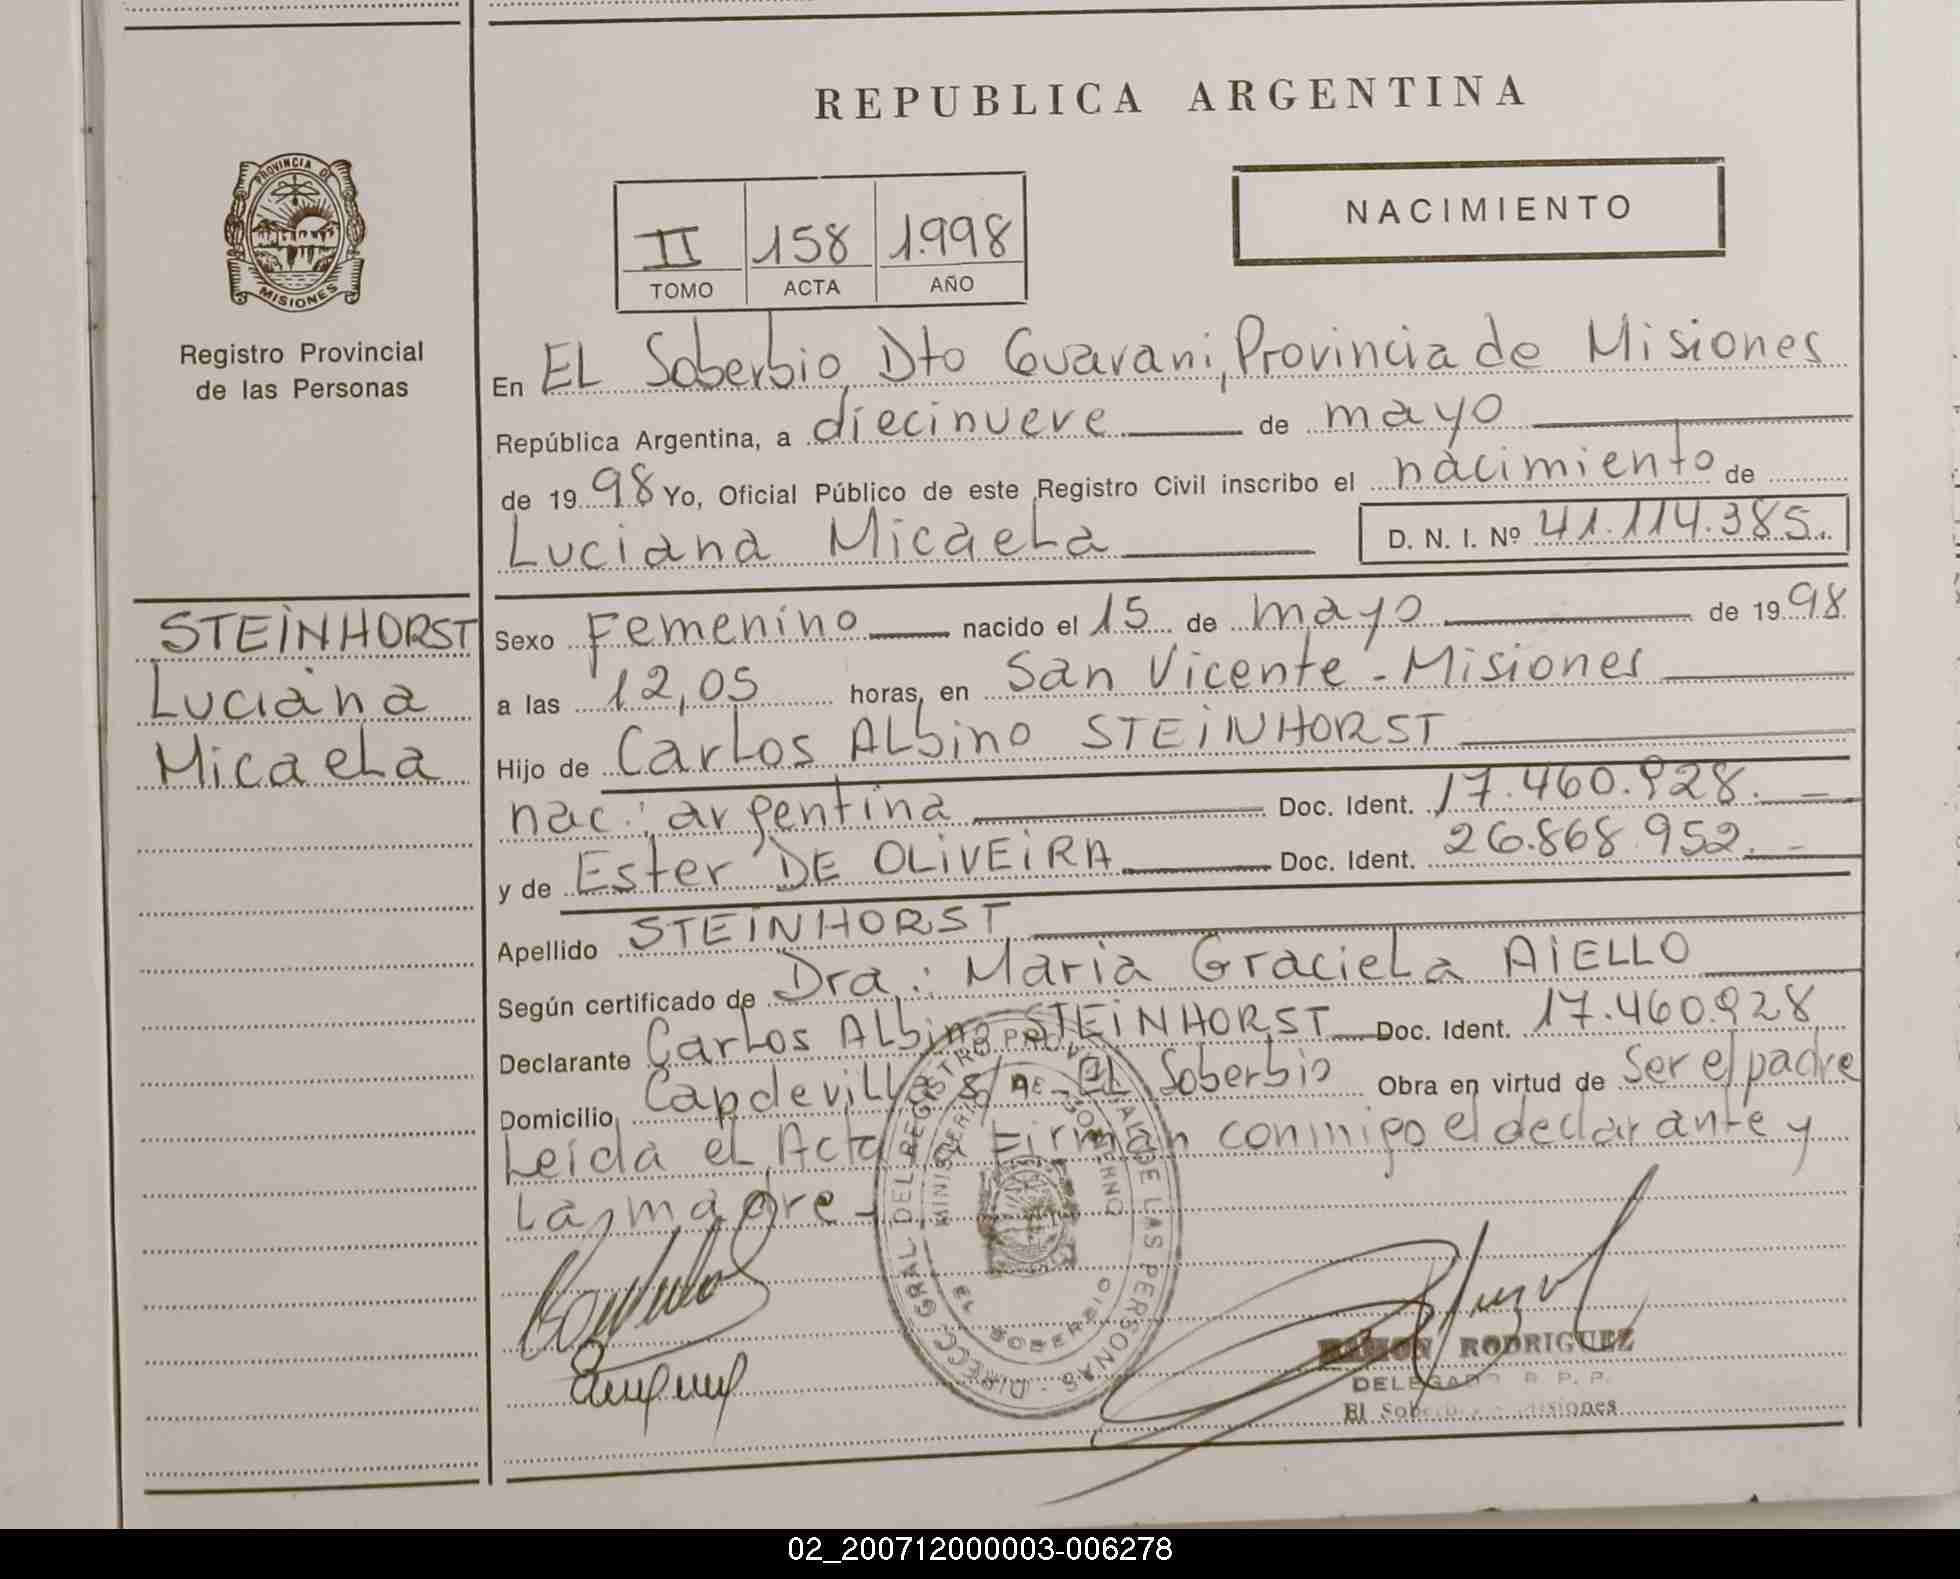 REPUBLICA ARGENTINA
PROVINCIA DE
MISIONES
Registro Provincial
de las Personas
II 158 1.998
TOMO ACTA AÑO
NACIMIENTO
En EL Soberbio, Dto Guarani, Provincia de Misiones
República Argentina, a diecinueve de mayo
de 1998 Yo, Oficial Público de este Registro Civil inscribo el nacimiento de
Luciana Micaela
D. N. I. Nº 41.114.385.
STEiNHORST
Luciana
Micaela
Sexo Femenino nacido el 15 de mayo de 1998
a las 12,05 horas, en San Vicente - Misiones
Hijo de Carlos ALbino STEiNHORST
nac: argentina Doc. Ident. 17.460.928.-
y de Ester DE OLiVEiRA Doc. Ident. 26.868.952.-
Apellido STEiNHORST
Según certificado de Dra.: Maria Graciela AiELLO
Declarante Carlos ALbino STEiNHORST Doc. Ident. 17.460.928
Domicilio Capdevilla S/Nº - EL Soberbio Obra en virtud de Ser el padre
Leída el Acta la Firman conmigo el declarante y
La madre -
DIRECC. GRAL DEL REGISTRO PROVINCIAL DE LAS PERSONAS
MINISTERIO DE GOBIERNO
SOBERBIO
RAMON RODRIGUEZ
DELEGADO R. P. P.
El Soberbio - Misiones
02_200712000003-006278